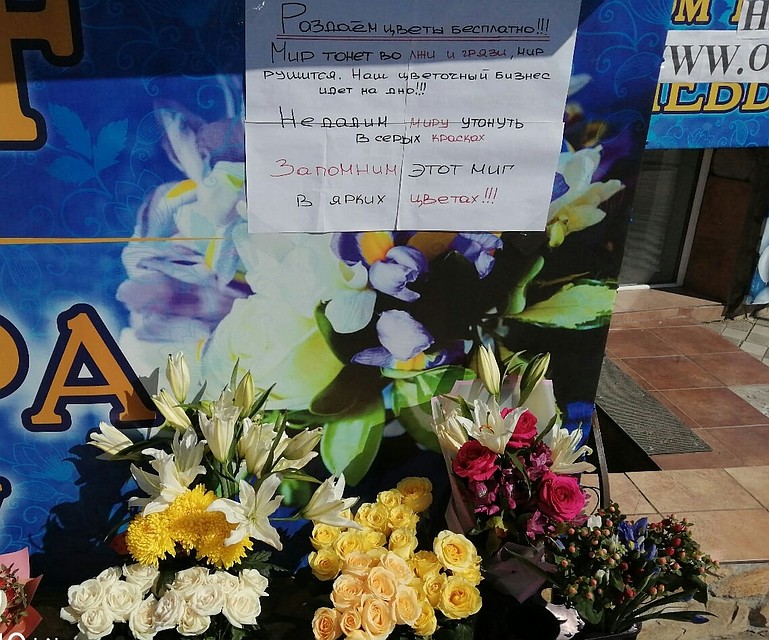 Раздаём цветы бесплатно!!!
Мир тонет во лжи и грязи, мир
рушится. Наш цветочный бизнес
идет на дно!!!
Не дадим миру утонуть
в серых красках
Запомним этот миг
в ярких цветах!!!
WWW.O
РА